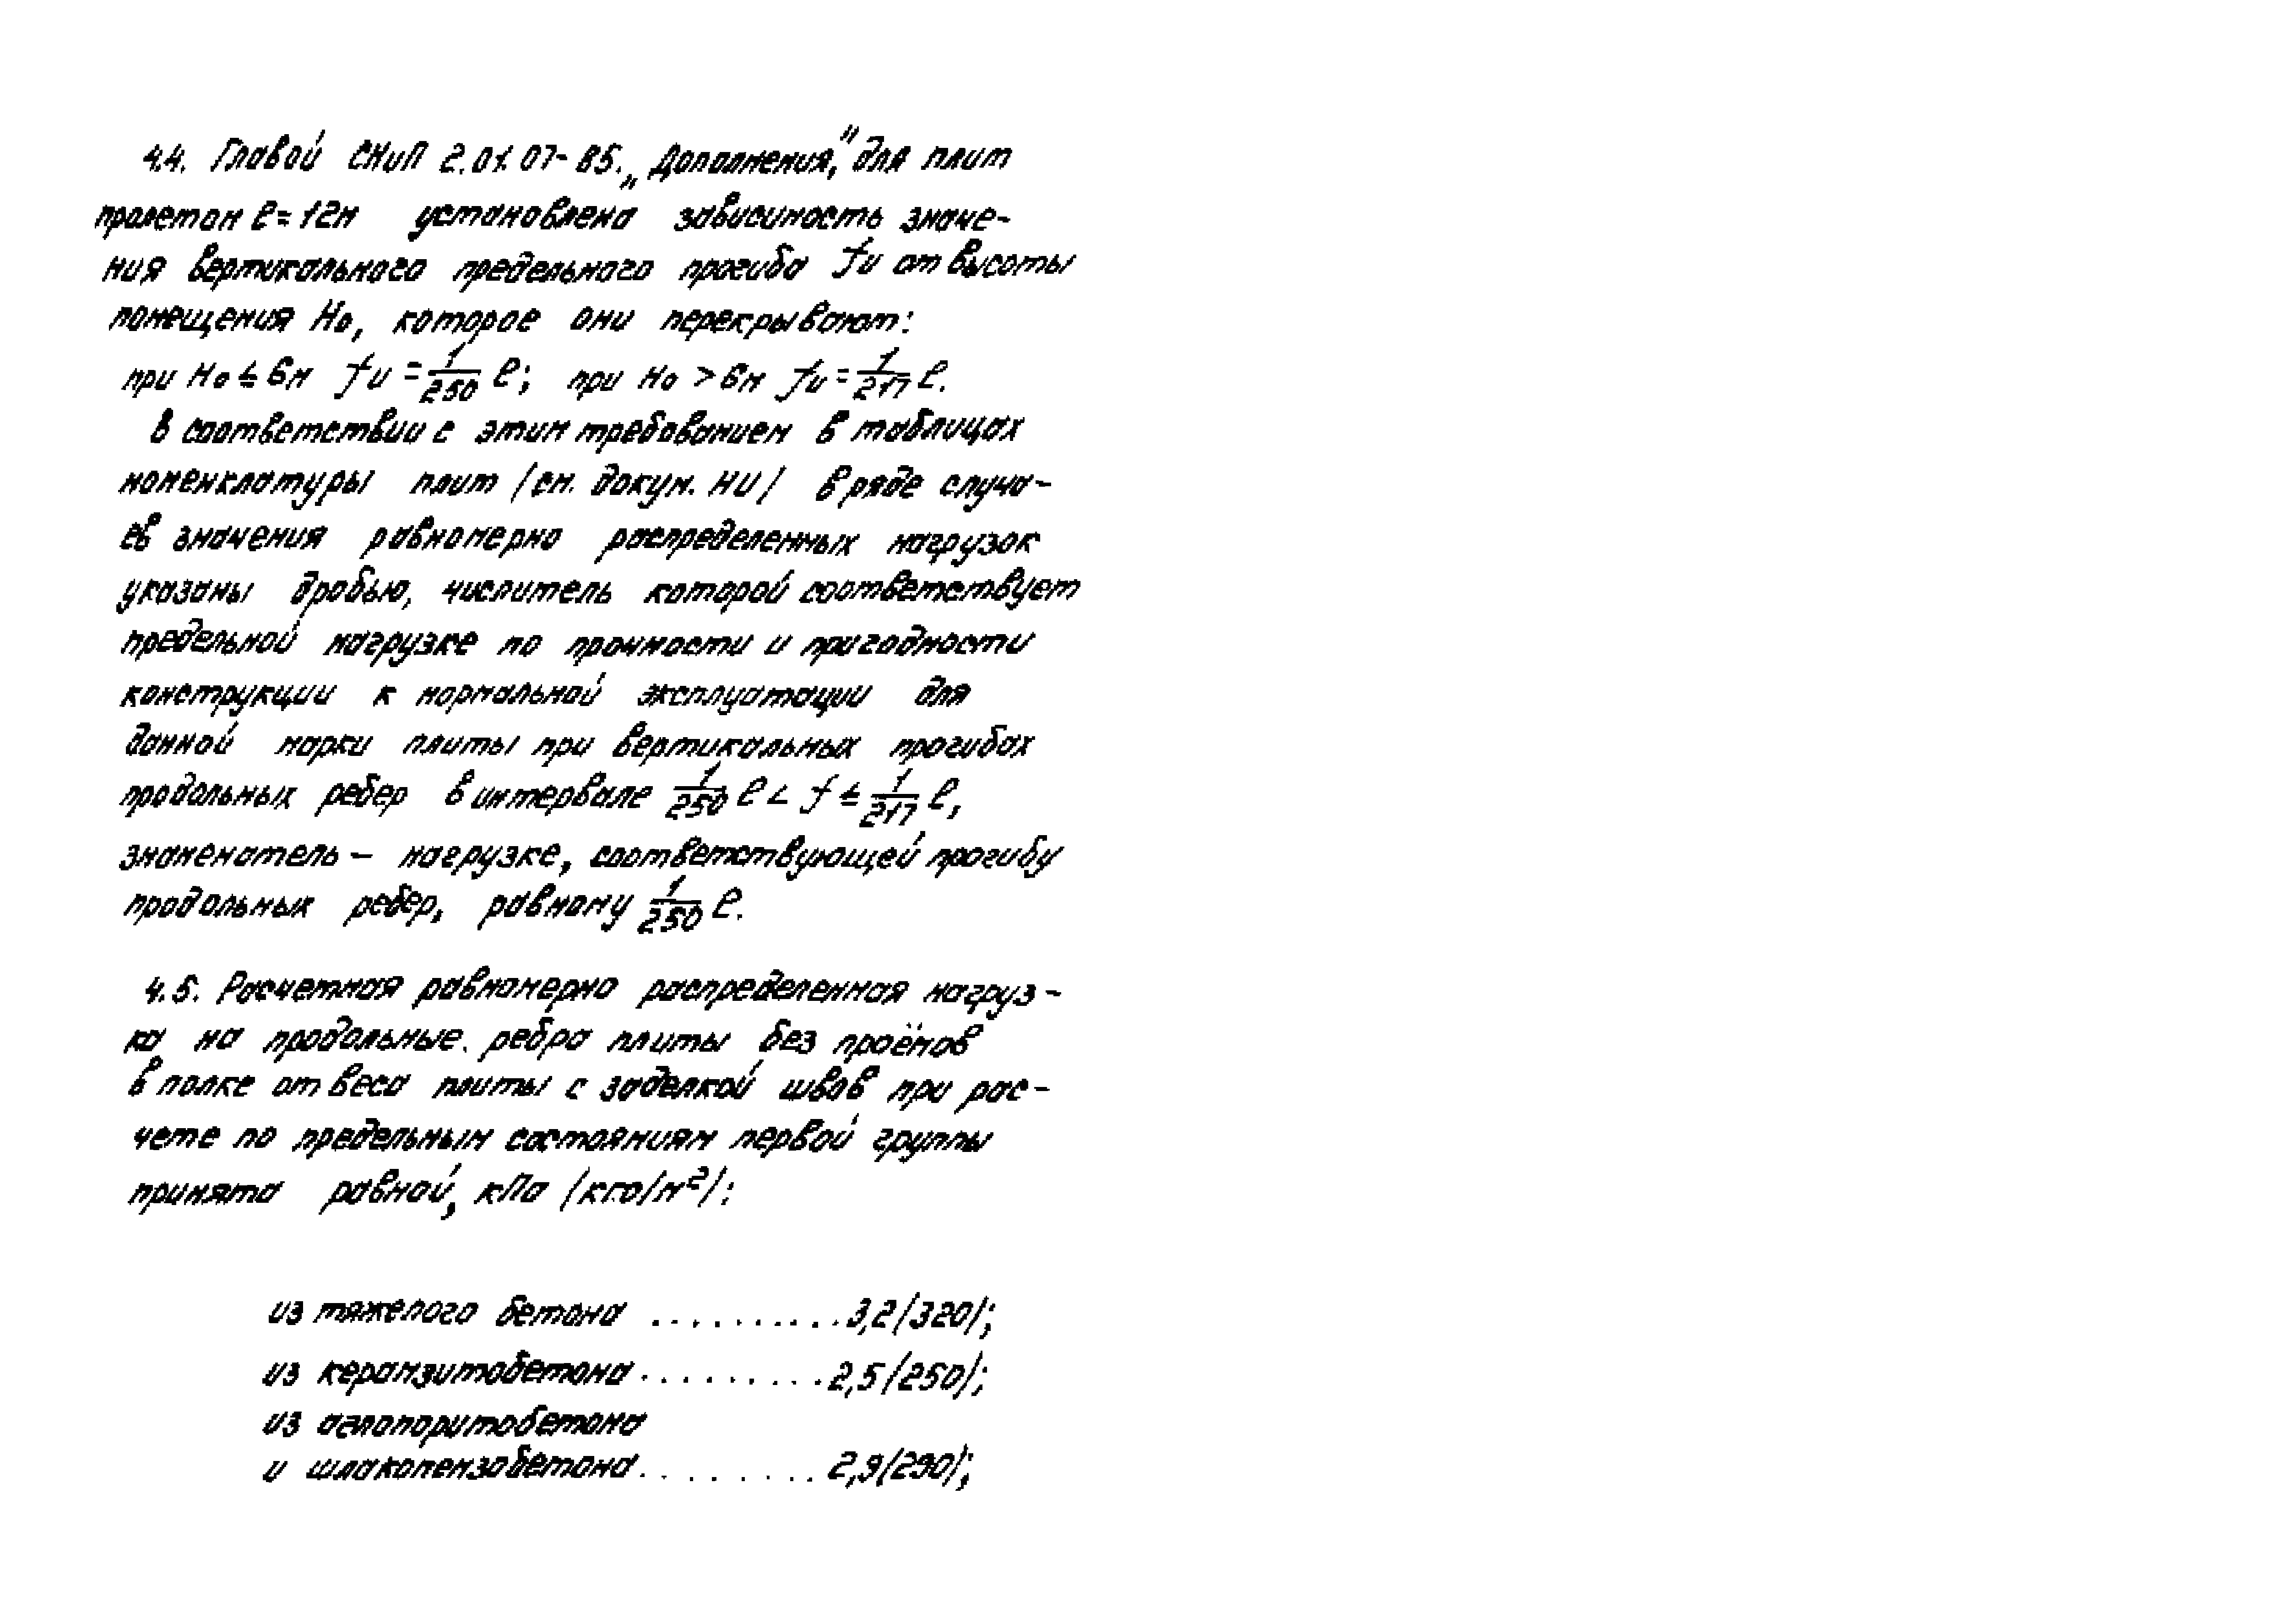 4.4. Главой СНиП 2.01.07-85 „Дополнения," для плит
пролетом ℓ = 12м установлена зависимость значе-
ния вертикального предельного прогиба fu от высоты
помещения Но, которое они перекрывают:
при Но ≤ 6м fu = 1/250 ℓ; при Но > 6м fu = 1/217 ℓ.
В соответствии с этим требованием в таблицах
номенклатуры плит /см. докум. НИ/ в ряде случа-
ев значения равномерно распределенных нагрузок
указаны дробью, числитель которой соответствует
предельной нагрузке по прочности и пригодности
конструкции к нормальной эксплуатации для
данной марки плиты при вертикальных прогибах
продольных ребер в интервале 1/250 ℓ < f ≤ 1/217 ℓ,
знаменатель – нагрузке, соответствующей прогибу
продольных ребер, равному 1/250 ℓ.
4.5. Расчетная равномерно распределенная нагруз-
ка на продольные ребра плиты без проёмов
в полке от веса плиты с заделкой швов при рас-
чете по предельным состояниям первой группы
принята равной, кПа /кгс/м²/:
из тяжелого бетона .......... 3,2/320/;
из керамзитобетона ......... 2,5/250/;
из аглопоритобетона
и шлакопемзобетона ........ 2,9/290/;